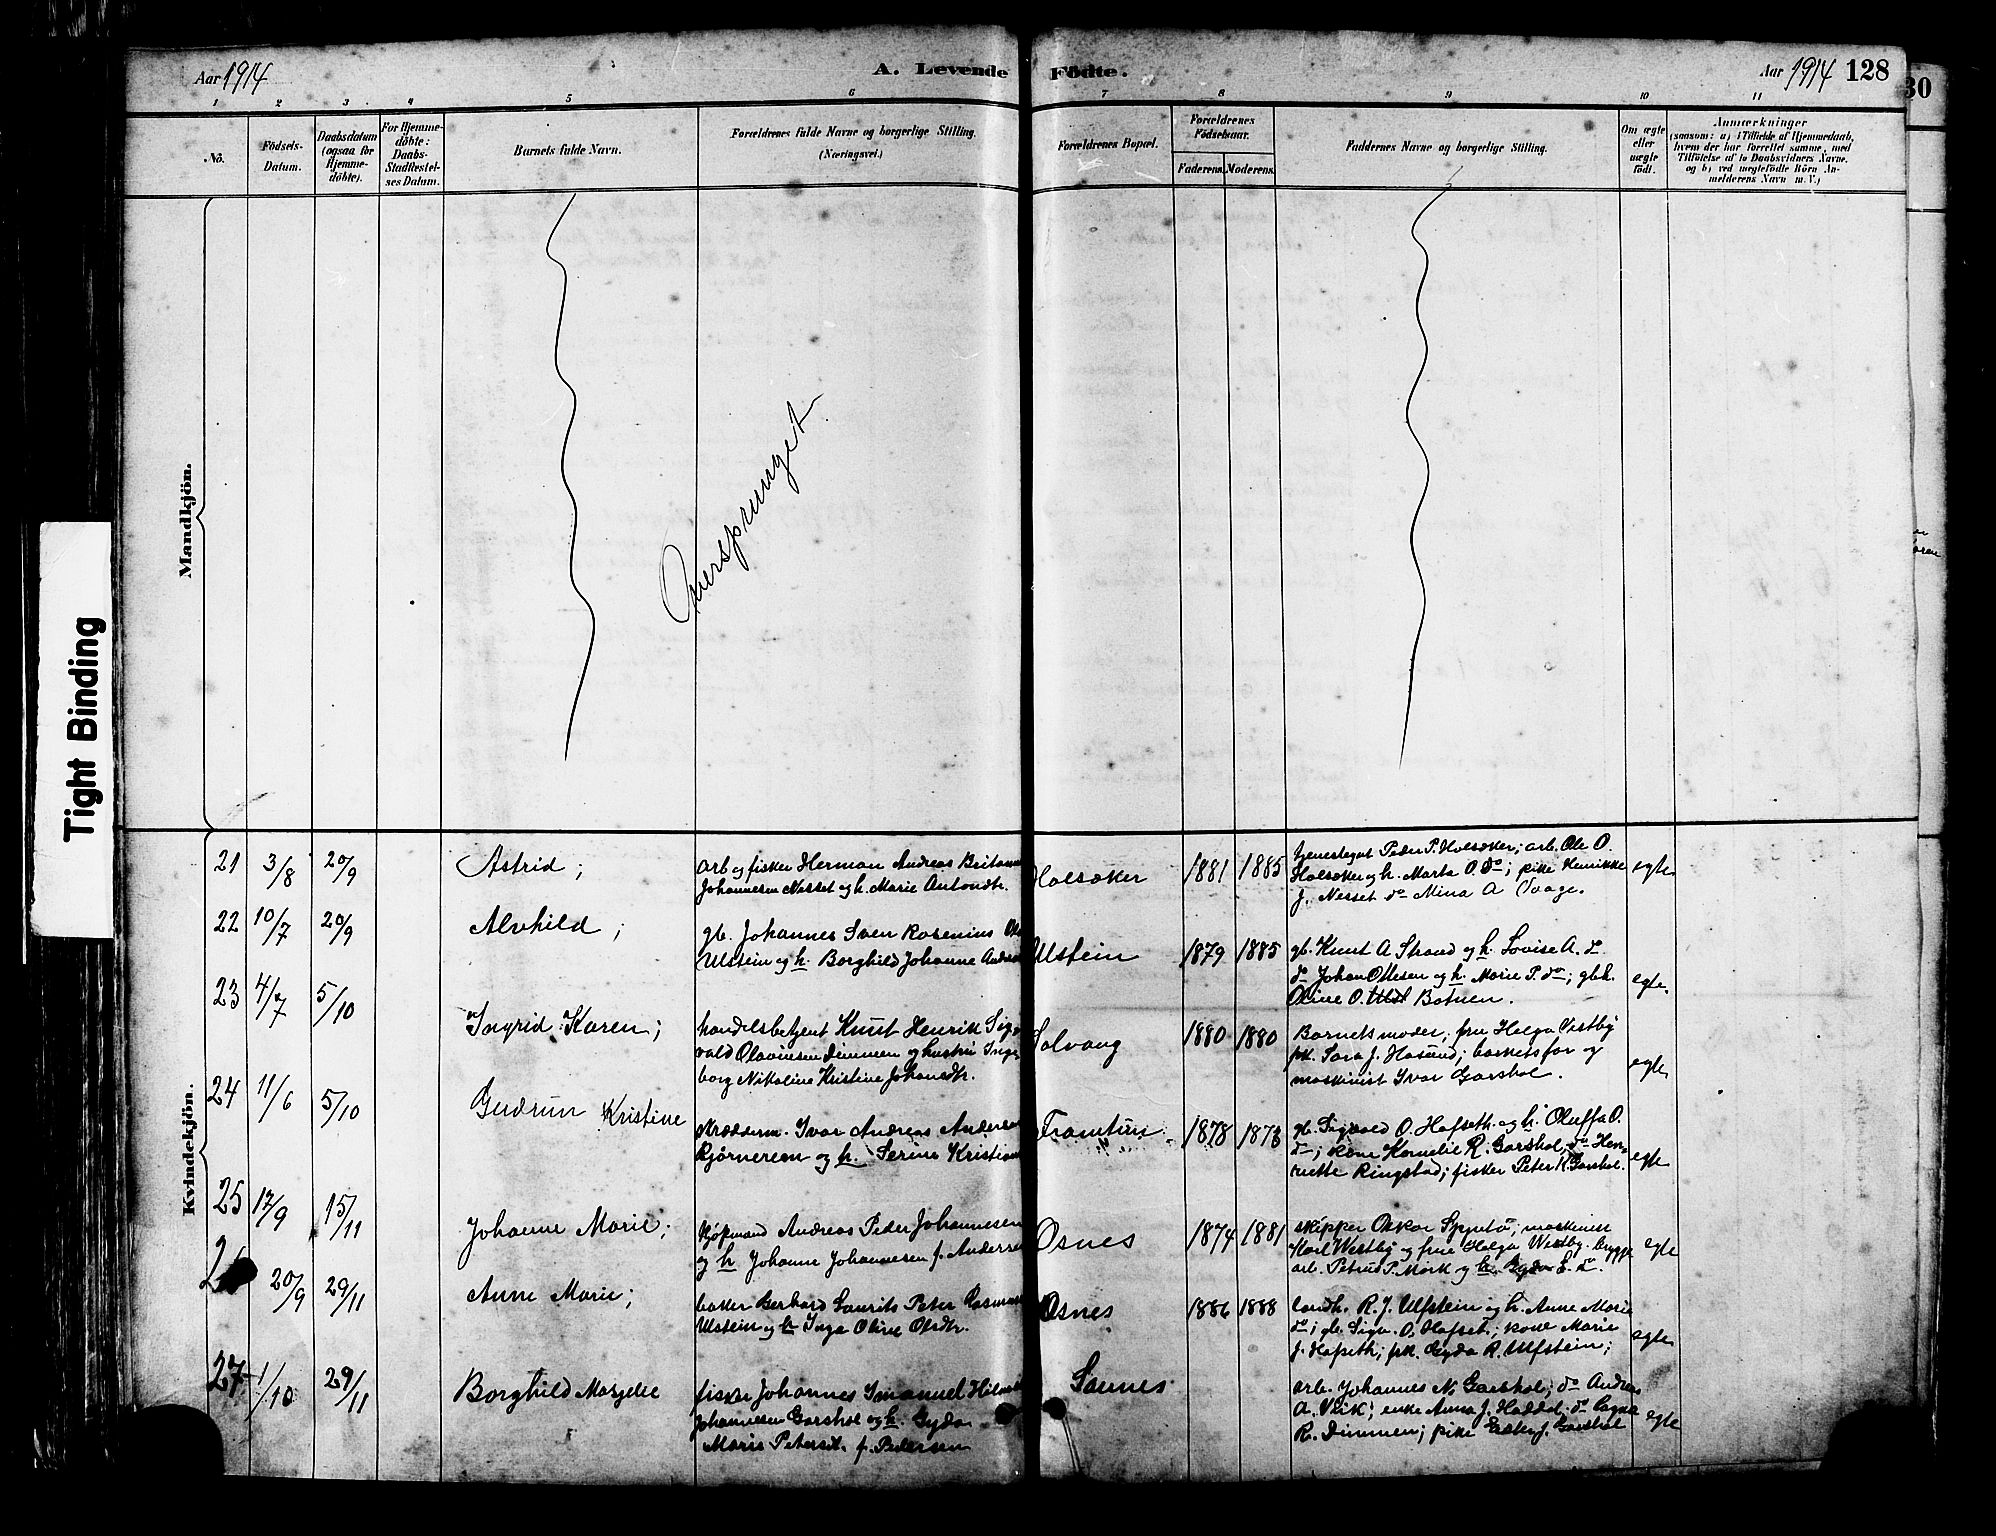 Aar 1914
A. Levende Födte.
Aar 1914 128
30
1 2 3 4 5 6 7 8 9 10 11
No.
Födsels-
Datum.
Daabsdatum
(ogsaa for
Hjemme-
döbte).
For Hjemme-
döbte:
Daabs-
Stadfestel-
ses Datum.
Barnets fulde Navn.
Forældrenes fulde Navne og borgerlige Stilling.
(Næringsvei.)
Forældrenes Bopæl.
Forældrenes
Födselsaar.
Faderens. Moderens.
Faddernes Navne og borgerlige Stilling.
Om ægte
eller
uægte
födt.
Anmærkninger
(saasom: a) i Tilfælde af Hjemmedaab,
hvem der har forrettet samme, med
Tilföielse af to Daabsvidners Navne.
og b) ved uægtefödte Börn An-
melderens Navn m. V.)
Mandkjön.
Overspringet
Tight Binding
Kvindekjön.
21 3/8 20/9 Astrid;
arb og fisker Herman Andreas
Johannesen Nesset og h. Marie Antondtr.
Holsæker 1881 1885
Peder P. Holsæker; arb. Ole O.
Holsæker og h. Marta O. do; pike Henrikke
J. Nesset do Mina A Vaage.
egte
22 10/7 20/9 Alvhild;
gb. Johannes Sven Rosenius
Ulstein og h. Borghild Johanne
Ulstein 1879 1885
gb. Knut A Strand og h. Lovise A. do
do Johan Ottesen og h. Marie P. do; gbh.
Oline O. Botnen.
egte.
23 4/7 5/10 Ingrid Karen;
Knut Henrik Sig-
vald Olavinsen Dimmen og hustru Inge-
borg Nikoline Kristine Johansdtr.
Solvang 1880 1880
Barnets moder, fru Helga Vestby
pk. Sara J. Hasund; barnets far og
maskinist Ivar Garshol.
egte
24 11/6 5/10 Gudrun Kristine
skrædderm. Ivar Andreas
Bjørnereem og h. Serine
Framtun 1878
gb. Sigvald O. Hafseth og h. Oluffa O.
do; kone Kornelie R. Garshol, do Hen-
riette Ringstad; fisker Peter K. Garshol.
egte
25 17/9 15/11 Johanne Marie;
Kjøpmand Andreas Peder Johannesen
og h Johanne Johannesen f.
Osnes 1874 1881
skipper Oskar
Karl Westby og frue Helga Westby. brygge
arb. Petrus P. Mork og h.
egte
20/9 29/11 Anne Marie;
baker Laurits Peter
Ulstein og h Inga Oline
Osnes 1886 1888
landh. R. J. Ulfstein og h. Anne Marie
do; gb. Sigv. O. Hafset; kone Marie
J. Hafseth; pk. Gyda R. Ulfstein;
egte
27 1/10 29/11 Borghild
fisker Johannes Imanuel
Johannesen Garshol og h. Gyda
Marie f. Pedersen
Saunes
arb. Johannes N. Garshol; do Andreas
A. Vik; enke Anna J. Haddal;
R. Dimmen; pike J. Garshol
egte